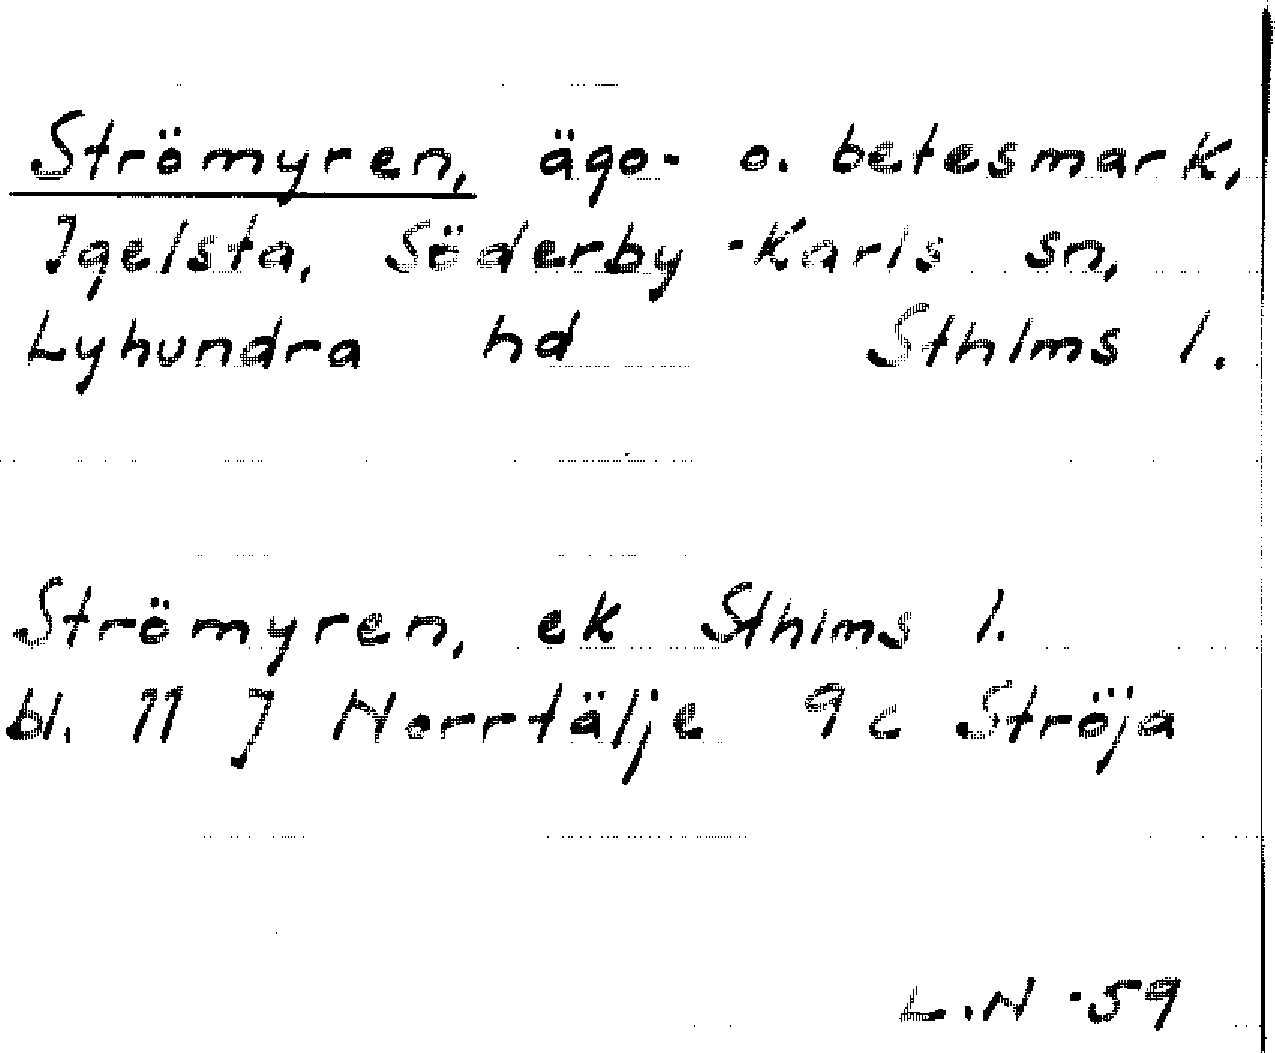 Strömyren, ägo- o. betesmark,
Igelsta, Söderby-Karls sn,
Lyhundra hd Sthlms l.
Strömyren, ek Sthlms l.
bl. 11 J Norrtälje 9 c Ströja
L.N -59